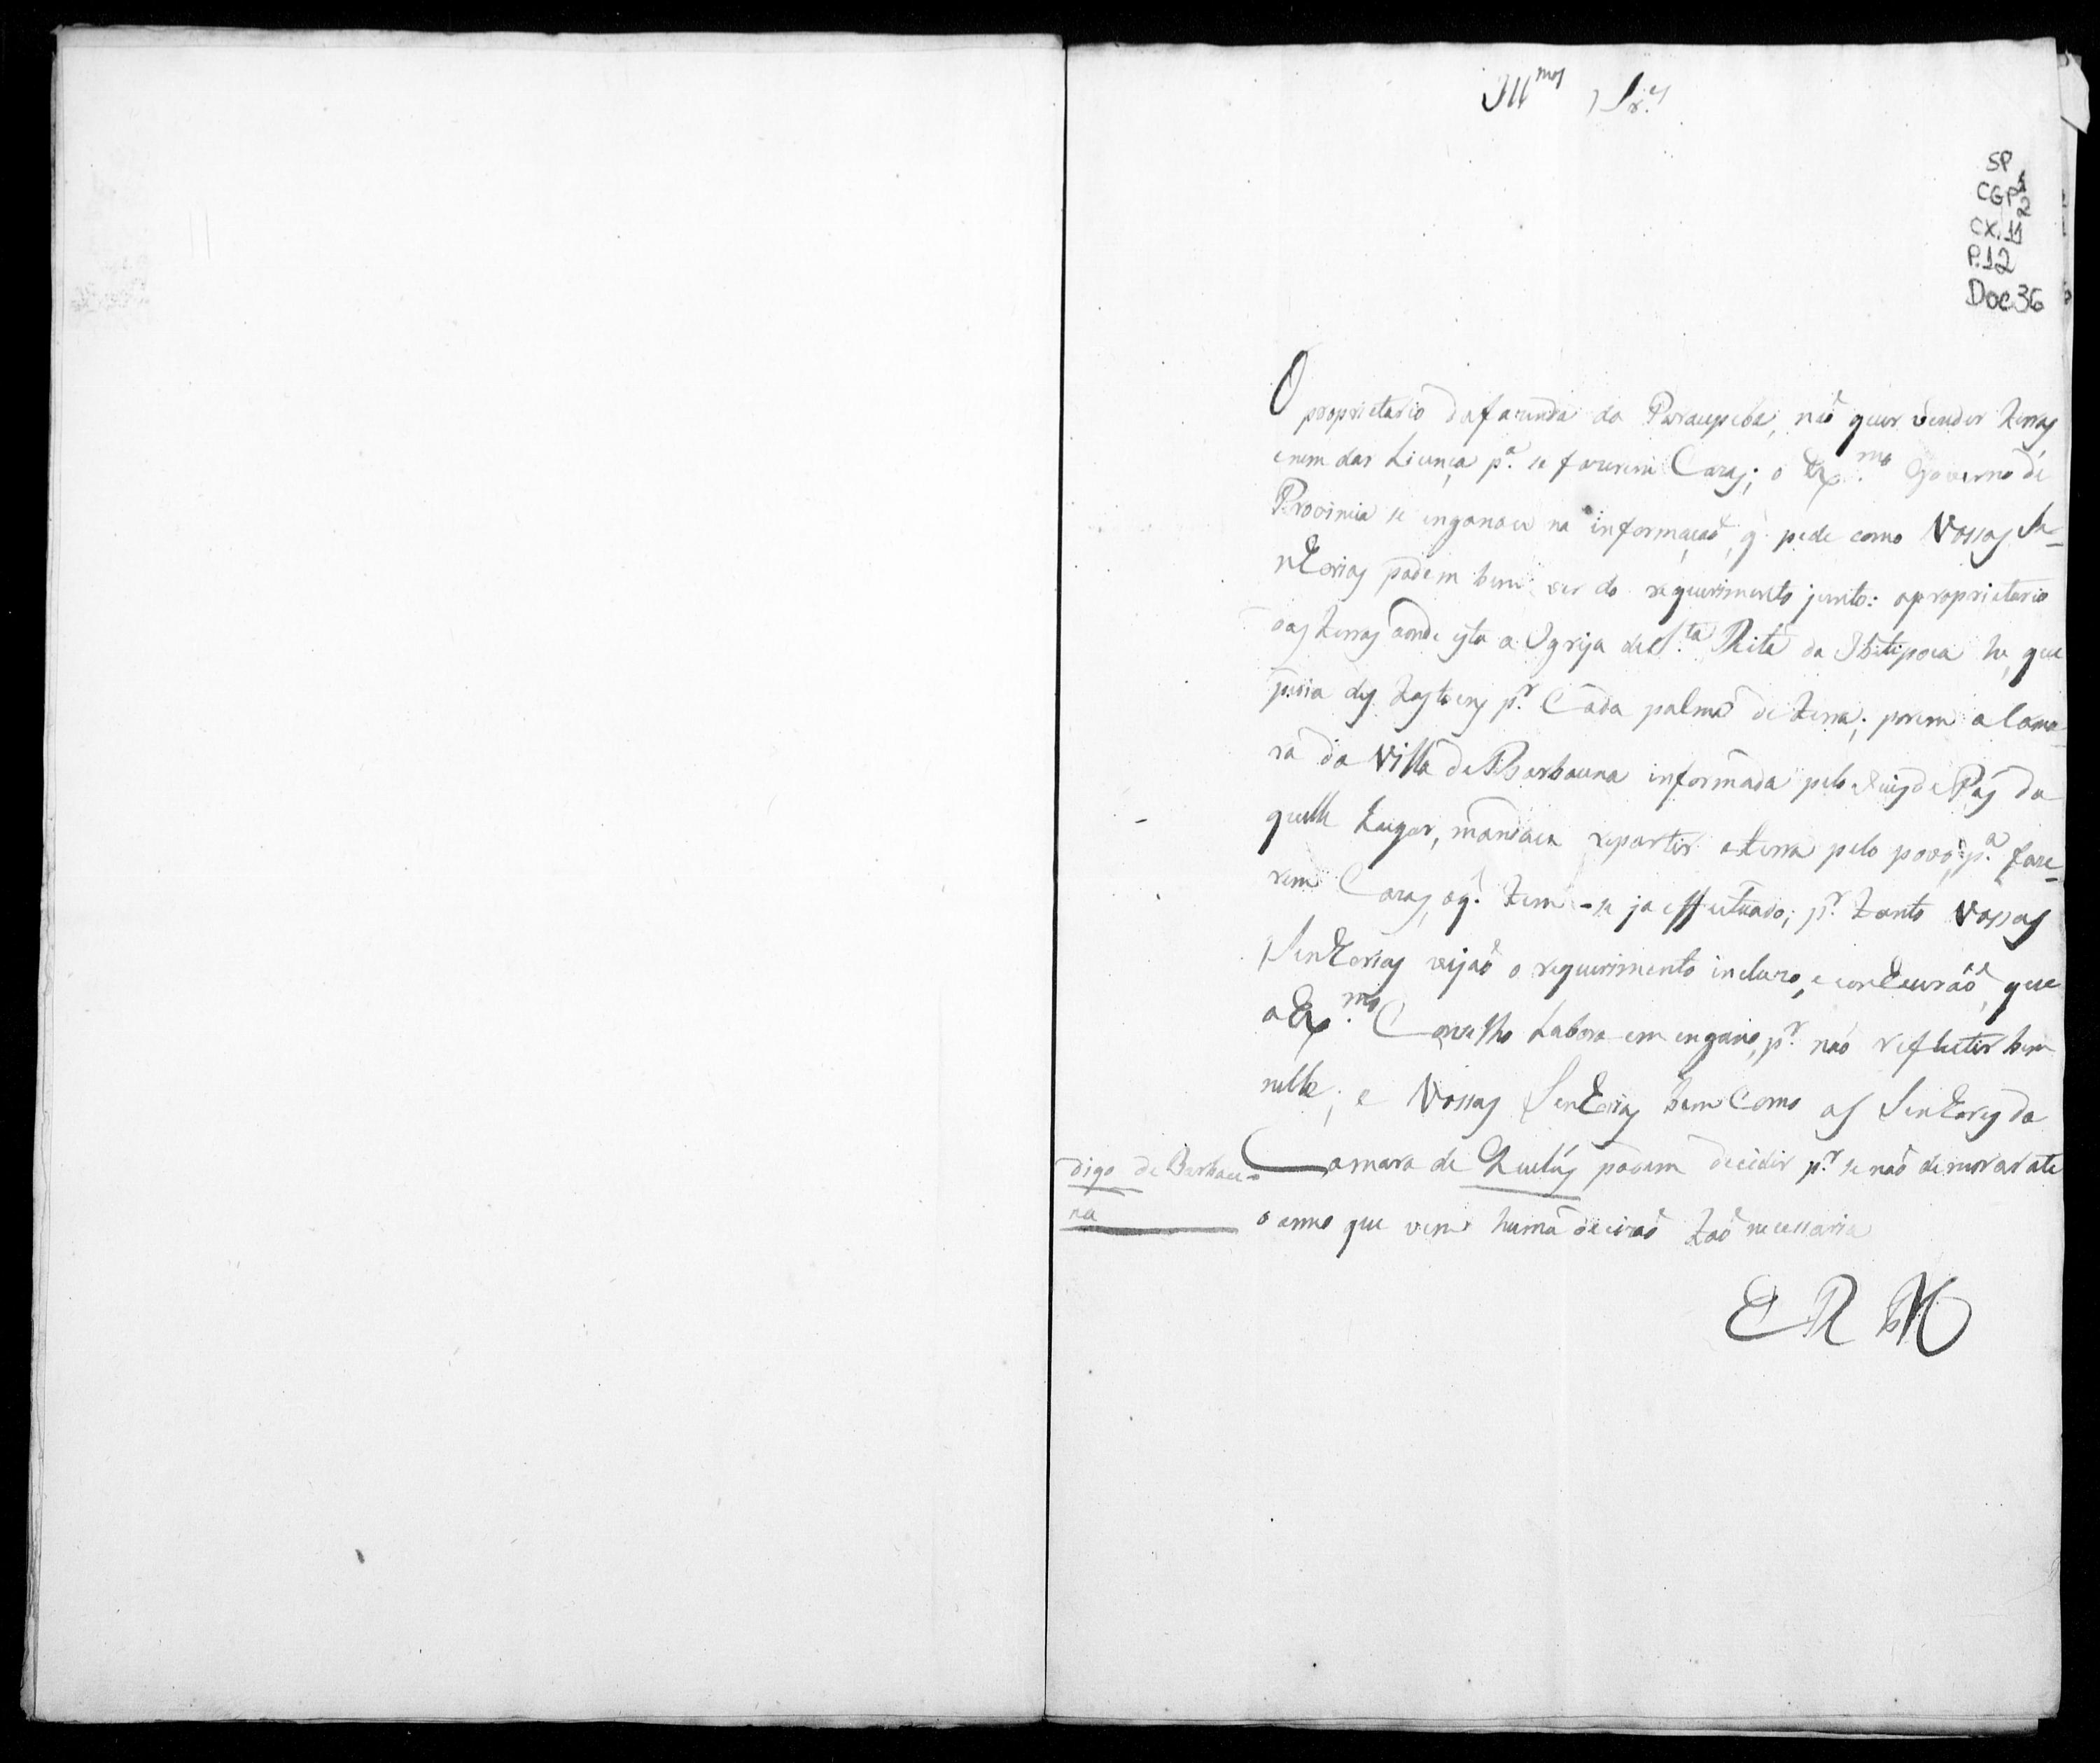 Ill.mos Sr.es
SP
CGP1
CX.11
P.12
Doc36
O proprietario da fazenda da Paraupeba, não quer vender terras
e nem dar Licença p.a se fazerem Cazas; o Ex.mo Governo de
Provincia se enganou na informação, q. pede como Vossas Se-
nhorias podem bem ver do requerimento junto: o proprietario
das terras aonde esta a Igreja de S.ta Rita da Ibitipoca he, que
pedia des tostoens p.r Cada palmo de terra; porem a Cama-
ra da Villa de Barbacena informada pelo Juis de Pas da
quelle Lugar, mandou repartir a terra pelo povo, p.a faze-
rem Cazas, o q. tem-se ja effectuado; p.r tanto Vossas
Senhorias vejão o requerimento incluzo, e conhecerão, que
o Ex.mo Conselho Labora em engano, p.r não reflectir bem
nelle; e Vossas Senhorias bem Como os Senhores da
Camara de Queluz podem decidir p.r se não demorar ate
o anno que vem huma decizão tão necessaria
digo de Barbace-
na
E R M